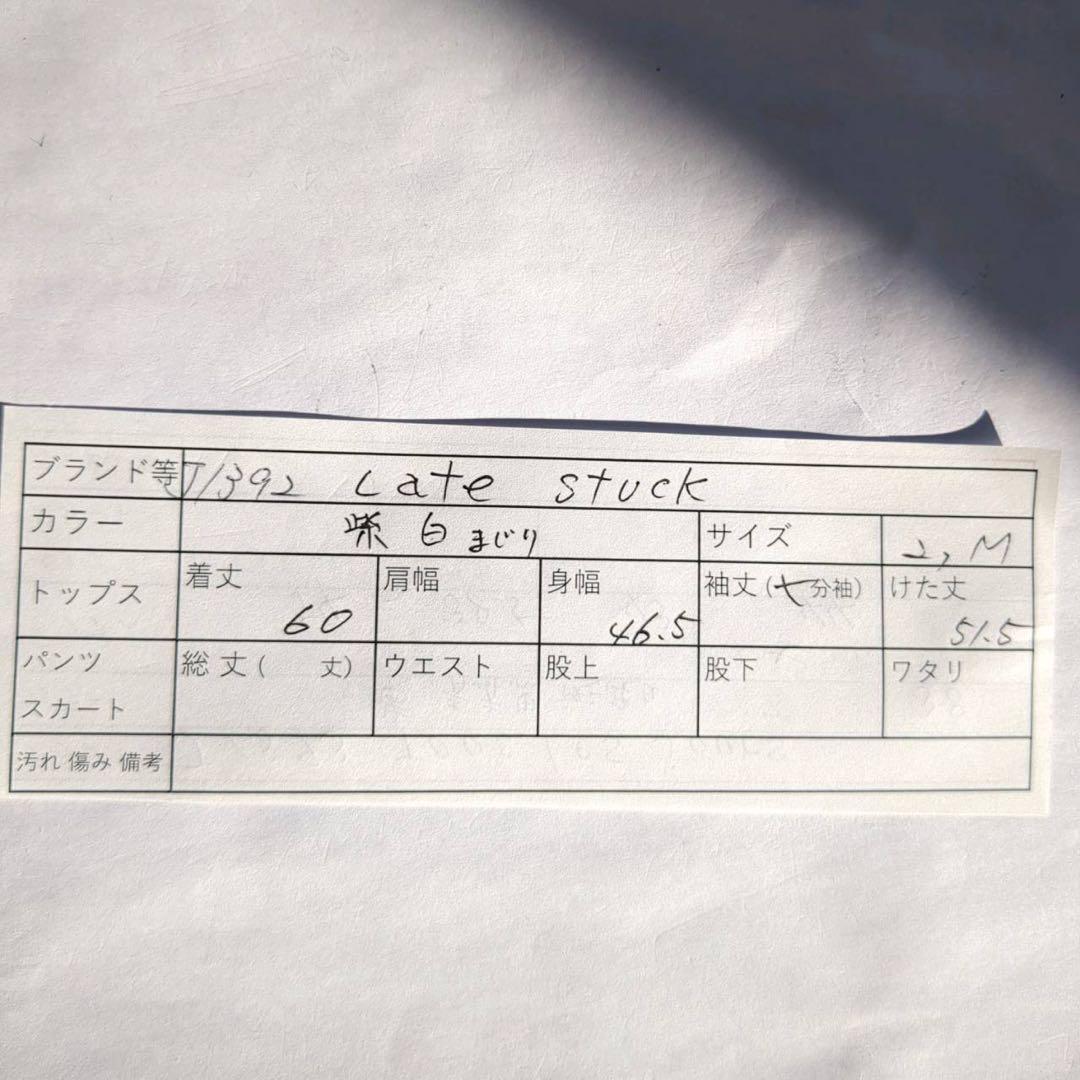 ブランド等 J1392 Late stuck
カラー 紫 白 まじり サイズ 2, M
トップス 着丈 60 肩幅 身幅 46.5 袖丈(七分袖) けた丈 51.5
パンツ スカート 総丈( 丈) ウエスト 股上 股下 ワタリ
汚れ 傷み 備考